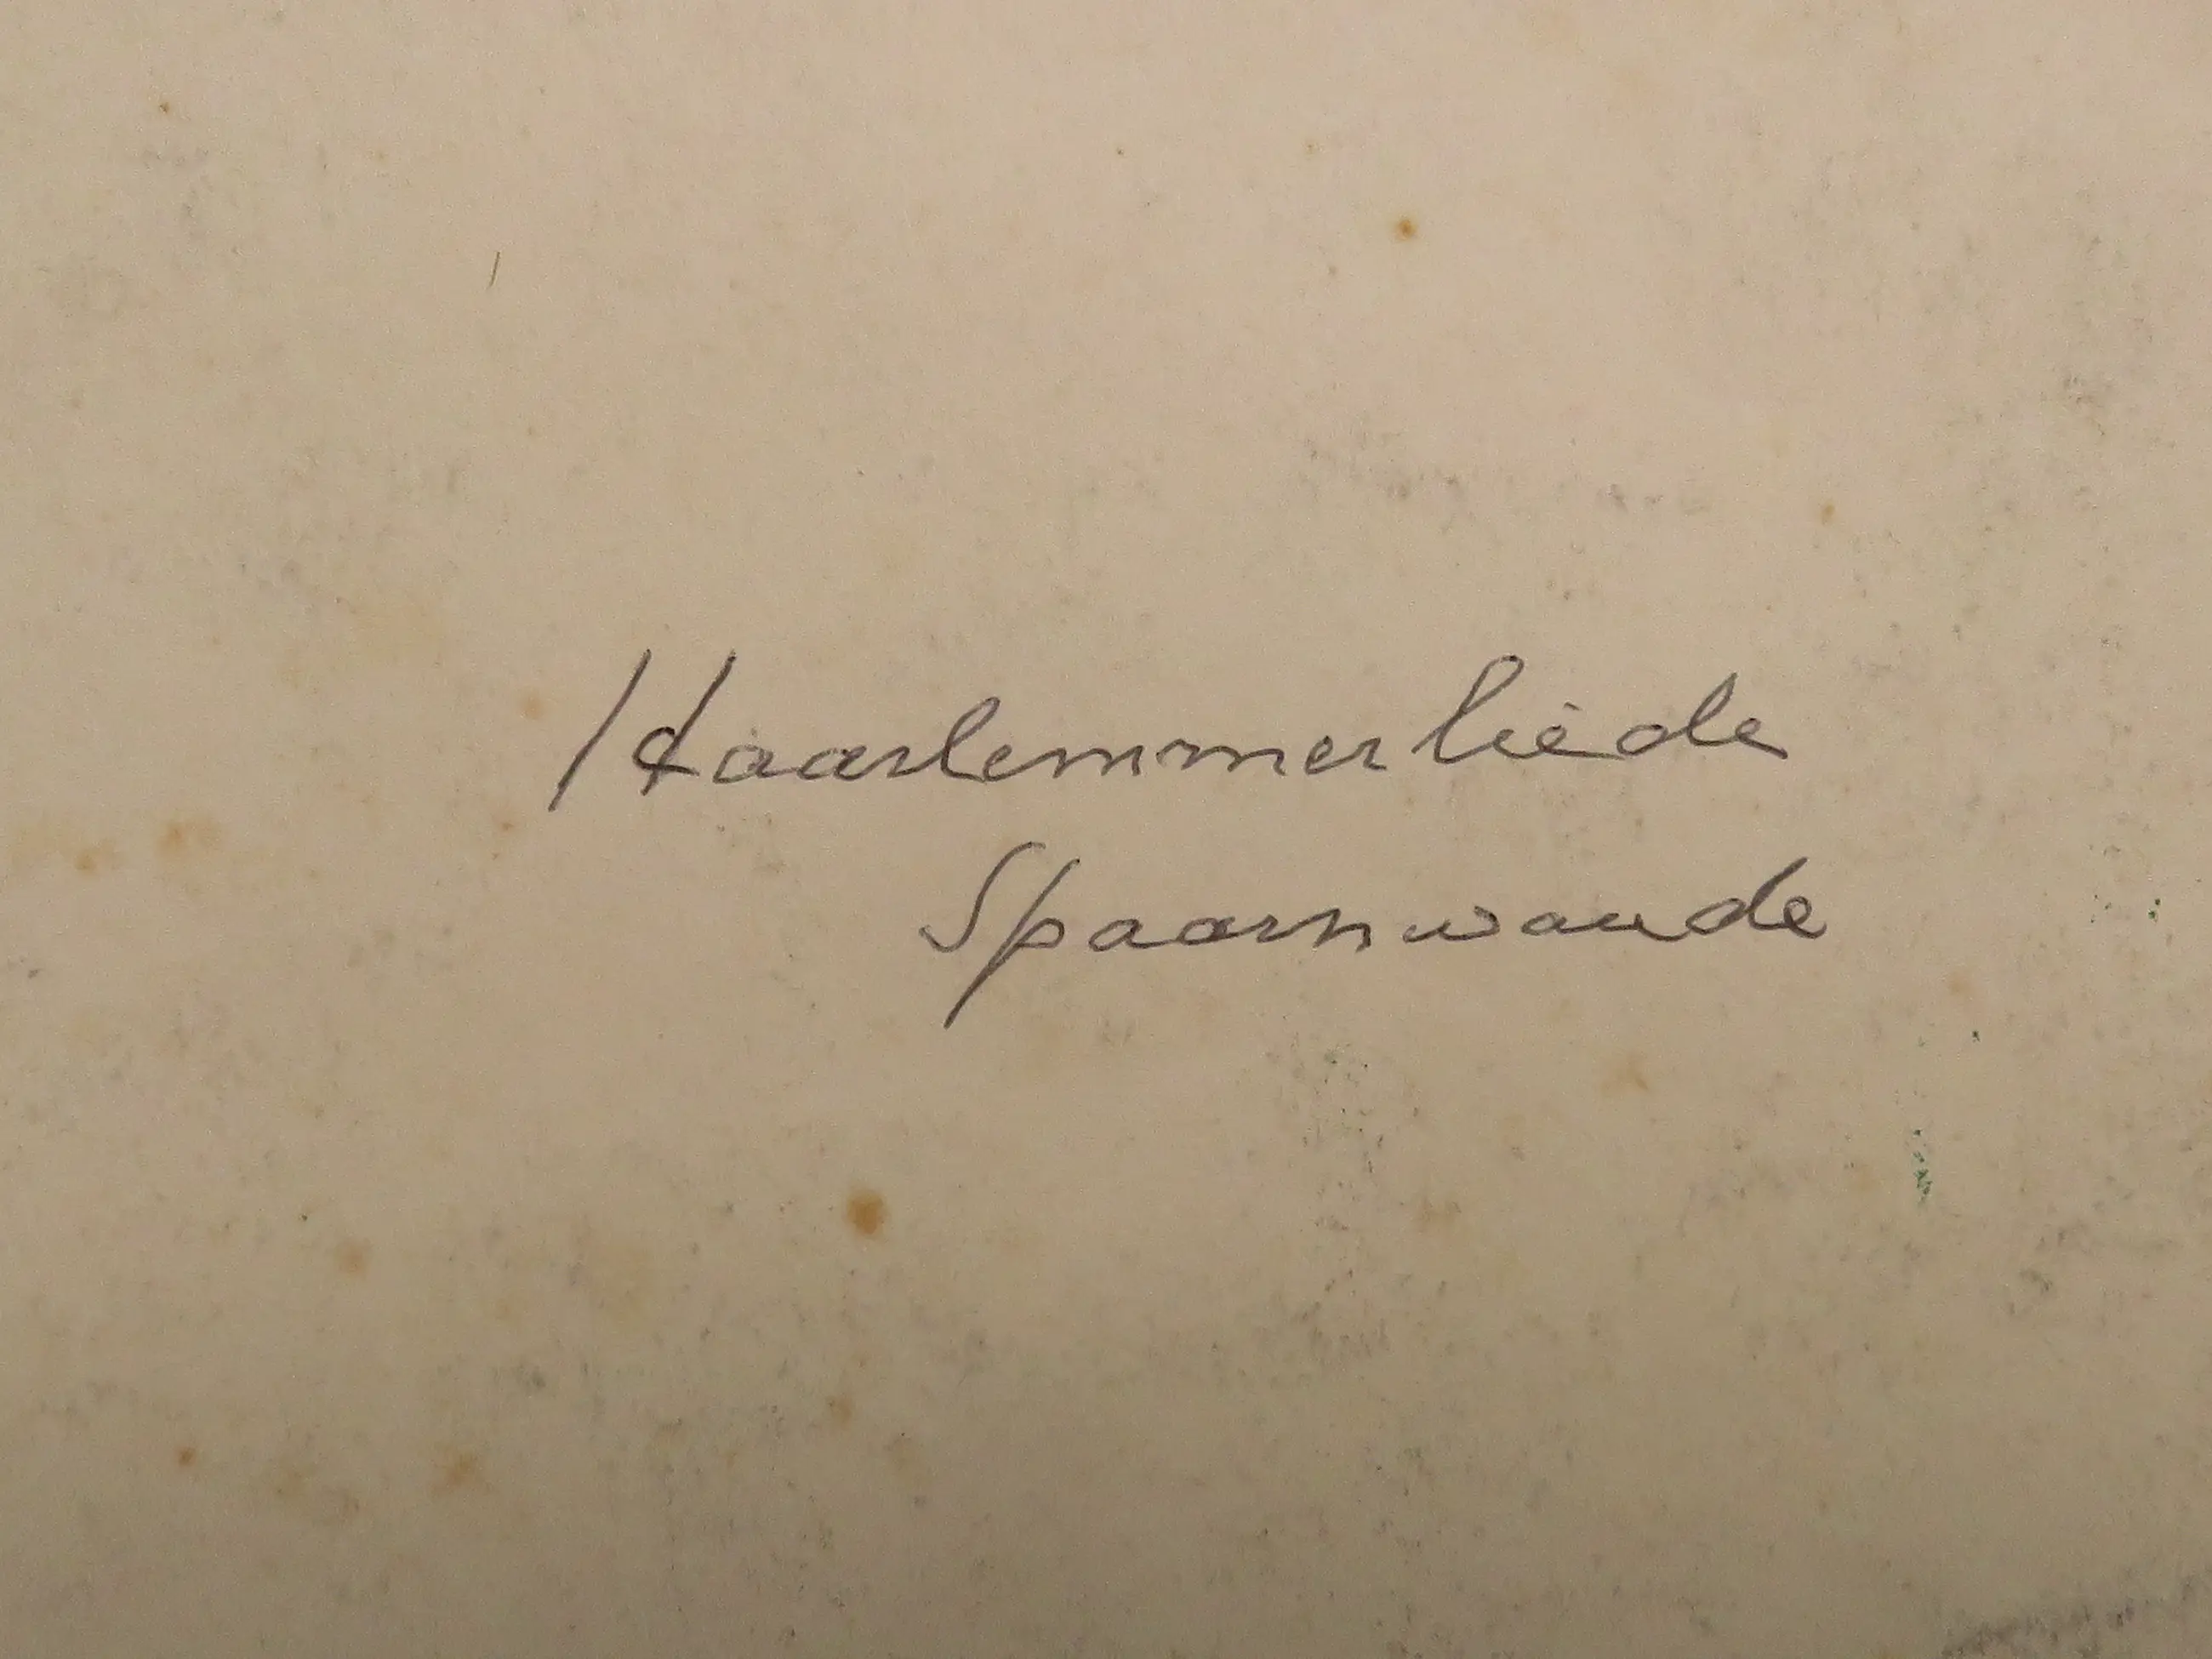 Haarlemmerliede
Spaarnwoude